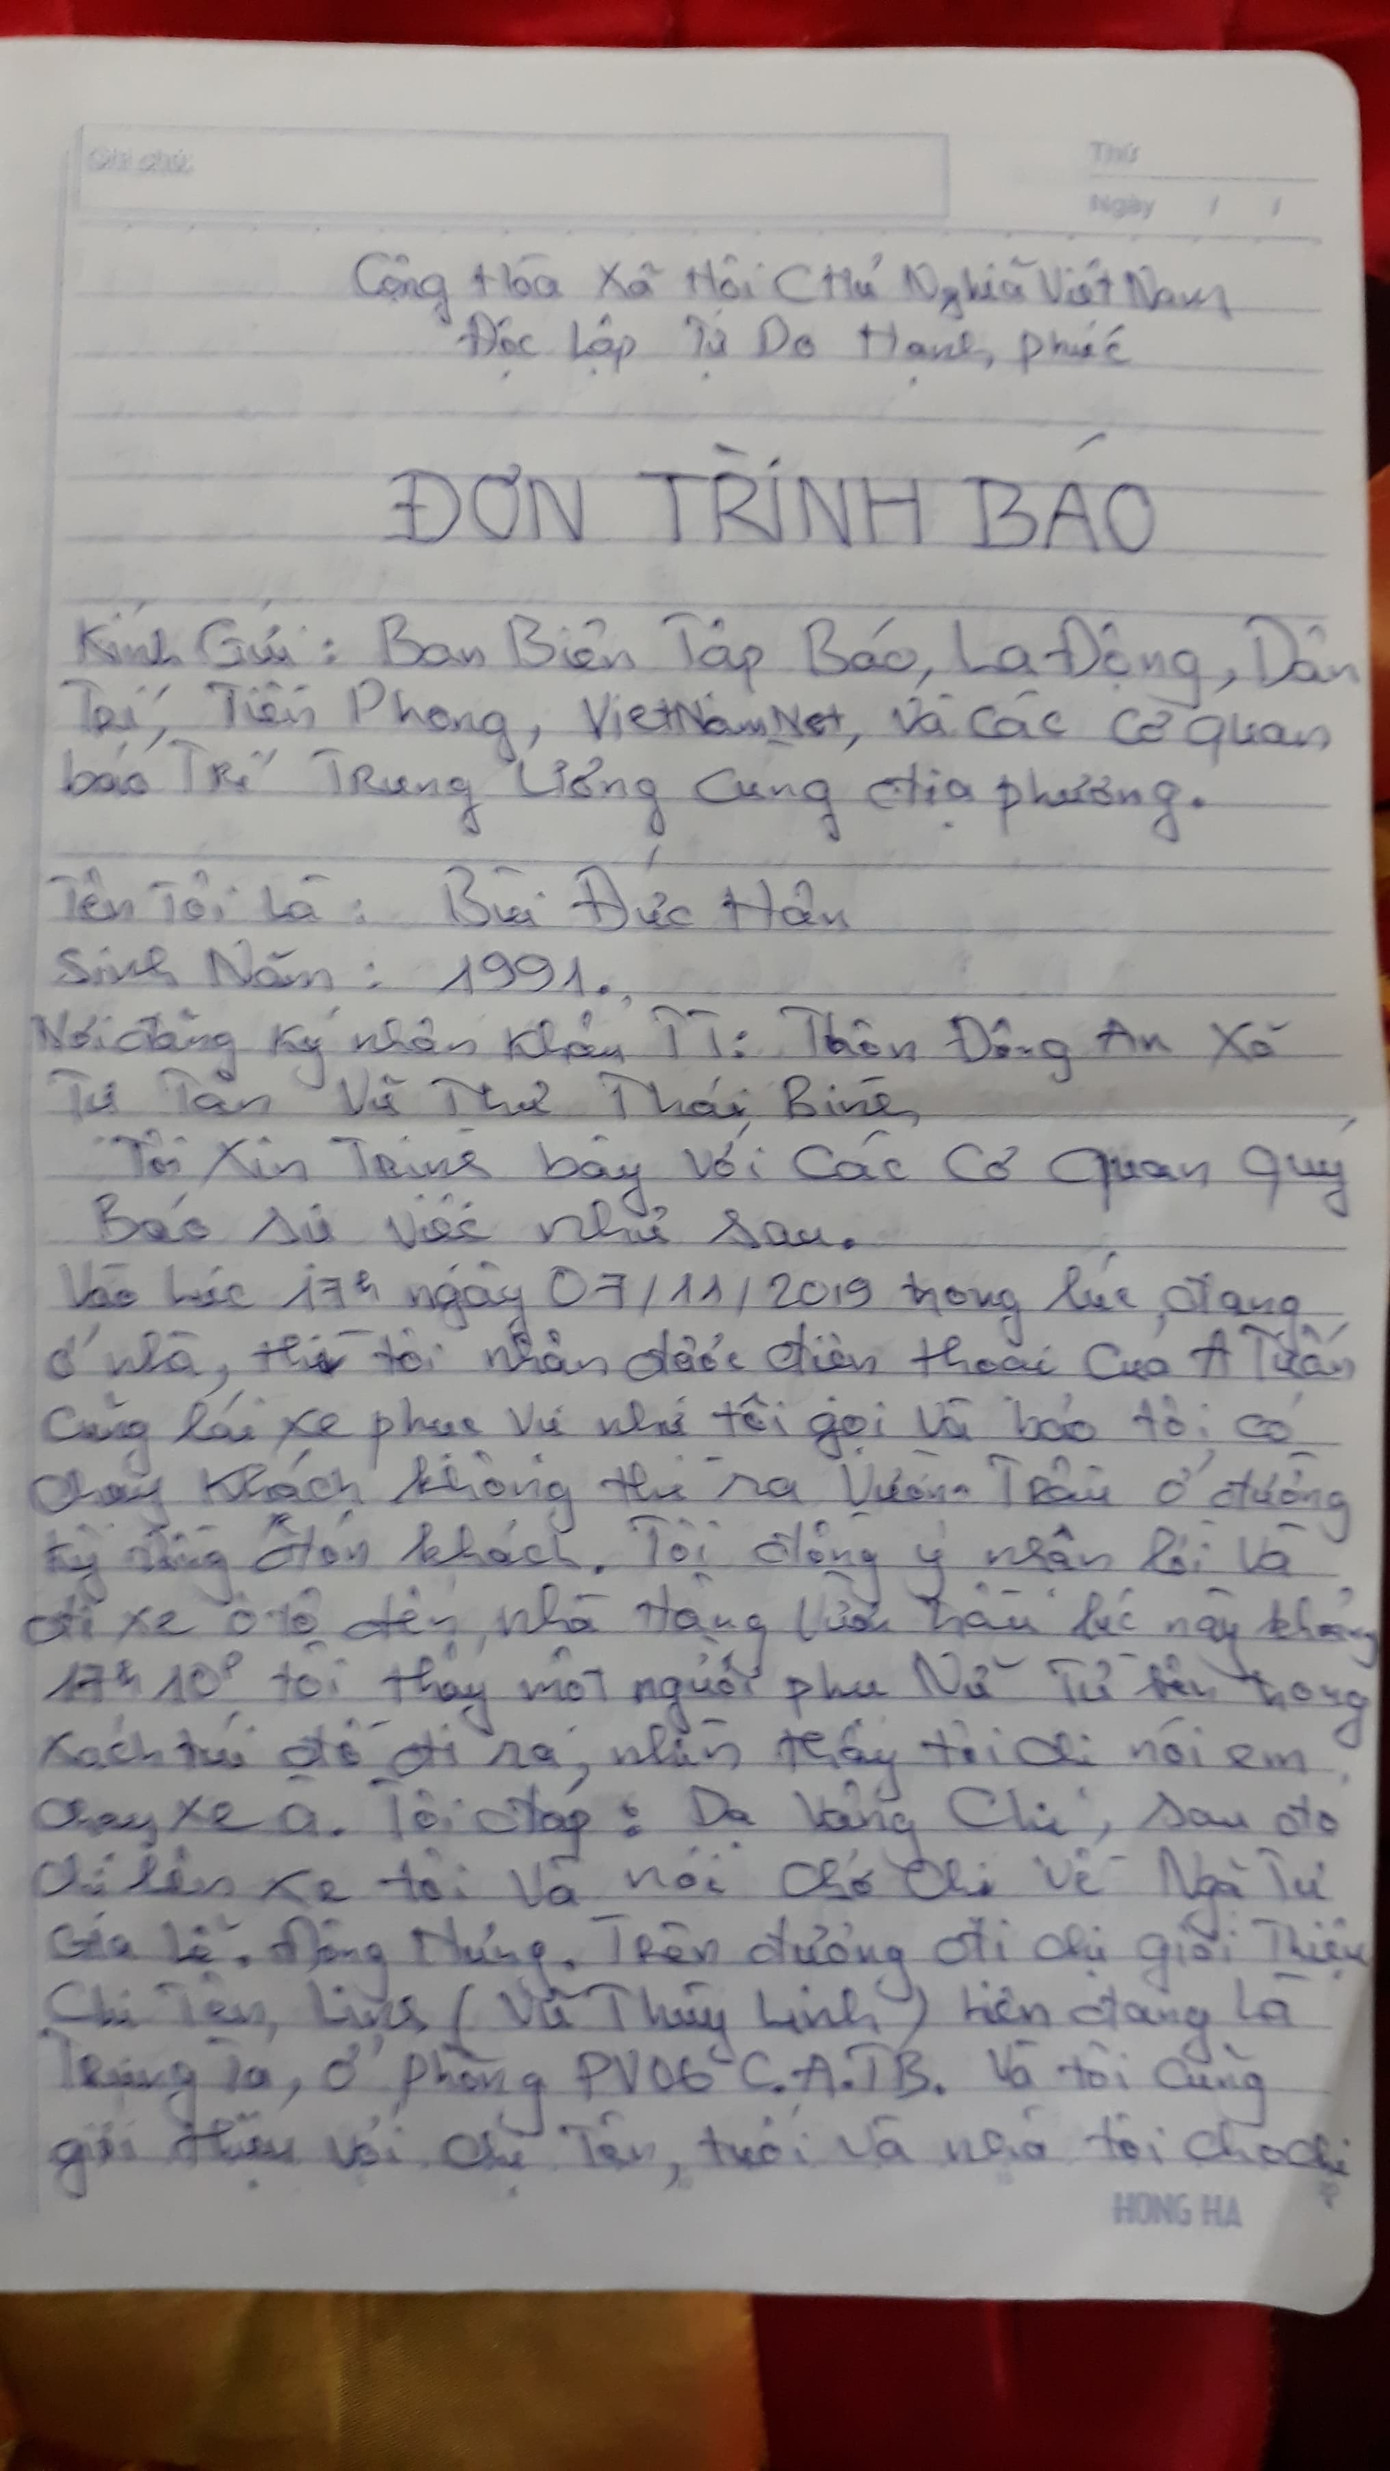 Ghi chú
Thứ
Ngày / /
Cộng Hòa Xã Hội Chủ Nghĩa Việt Nam
Độc Lập Tự Do Hạnh phúc
ĐƠN TRÌNH BÁO
Kính Gửi: Ban Biên Tập Báo, La Động, Dân
Trí, Tiền Phong, VietNamNet, và các cơ quan
báo Trí Trung Ương cung địa phương.
Tên Tôi Là: Bùi Đức Hân
Sinh Năm: 1991.
Nơi đăng ký nhân khẩu TT: Thôn Đông An Xã
Tự Tân Vũ Thư Thái Bình
Tôi Xin Trình bày với các cơ quan quý
Báo sự việc như sau.
Vào lúc 17h ngày 07/11/2019 trong lúc đang
ở nhà, thì tôi nhận được điện thoại của A Tuấn
cũng lái xe phục vụ như tôi gọi và bảo tôi có
chạy khách không thì ra Vườn Trâu ở đường
kỳ đồng đón khách. Tôi đồng ý nhận lời và
đi xe ô tô đến nhà Hàng Vườn Trâu lúc này khoảng
17h10p tôi thấy một người phụ Nữ Từ bên trong
xách túi đồ đi ra, nhìn thấy tôi chị nói em
chạy xe à. Tôi đáp: Dạ Vâng Chị, sau đó
chị lên xe tôi và nói chở chị về Ngã Tư
Gia Lễ. Đông Hưng. Trên đường đi chị giới Thiệu
Chị Tên Linh (Vũ Thùy Linh) hiện đang Là
Trung Tá, ở phòng PV06 C.A.TB. Và tôi cũng
giới thiệu với chị Tên, tuổi và nhà tôi cho chị
HONG HA